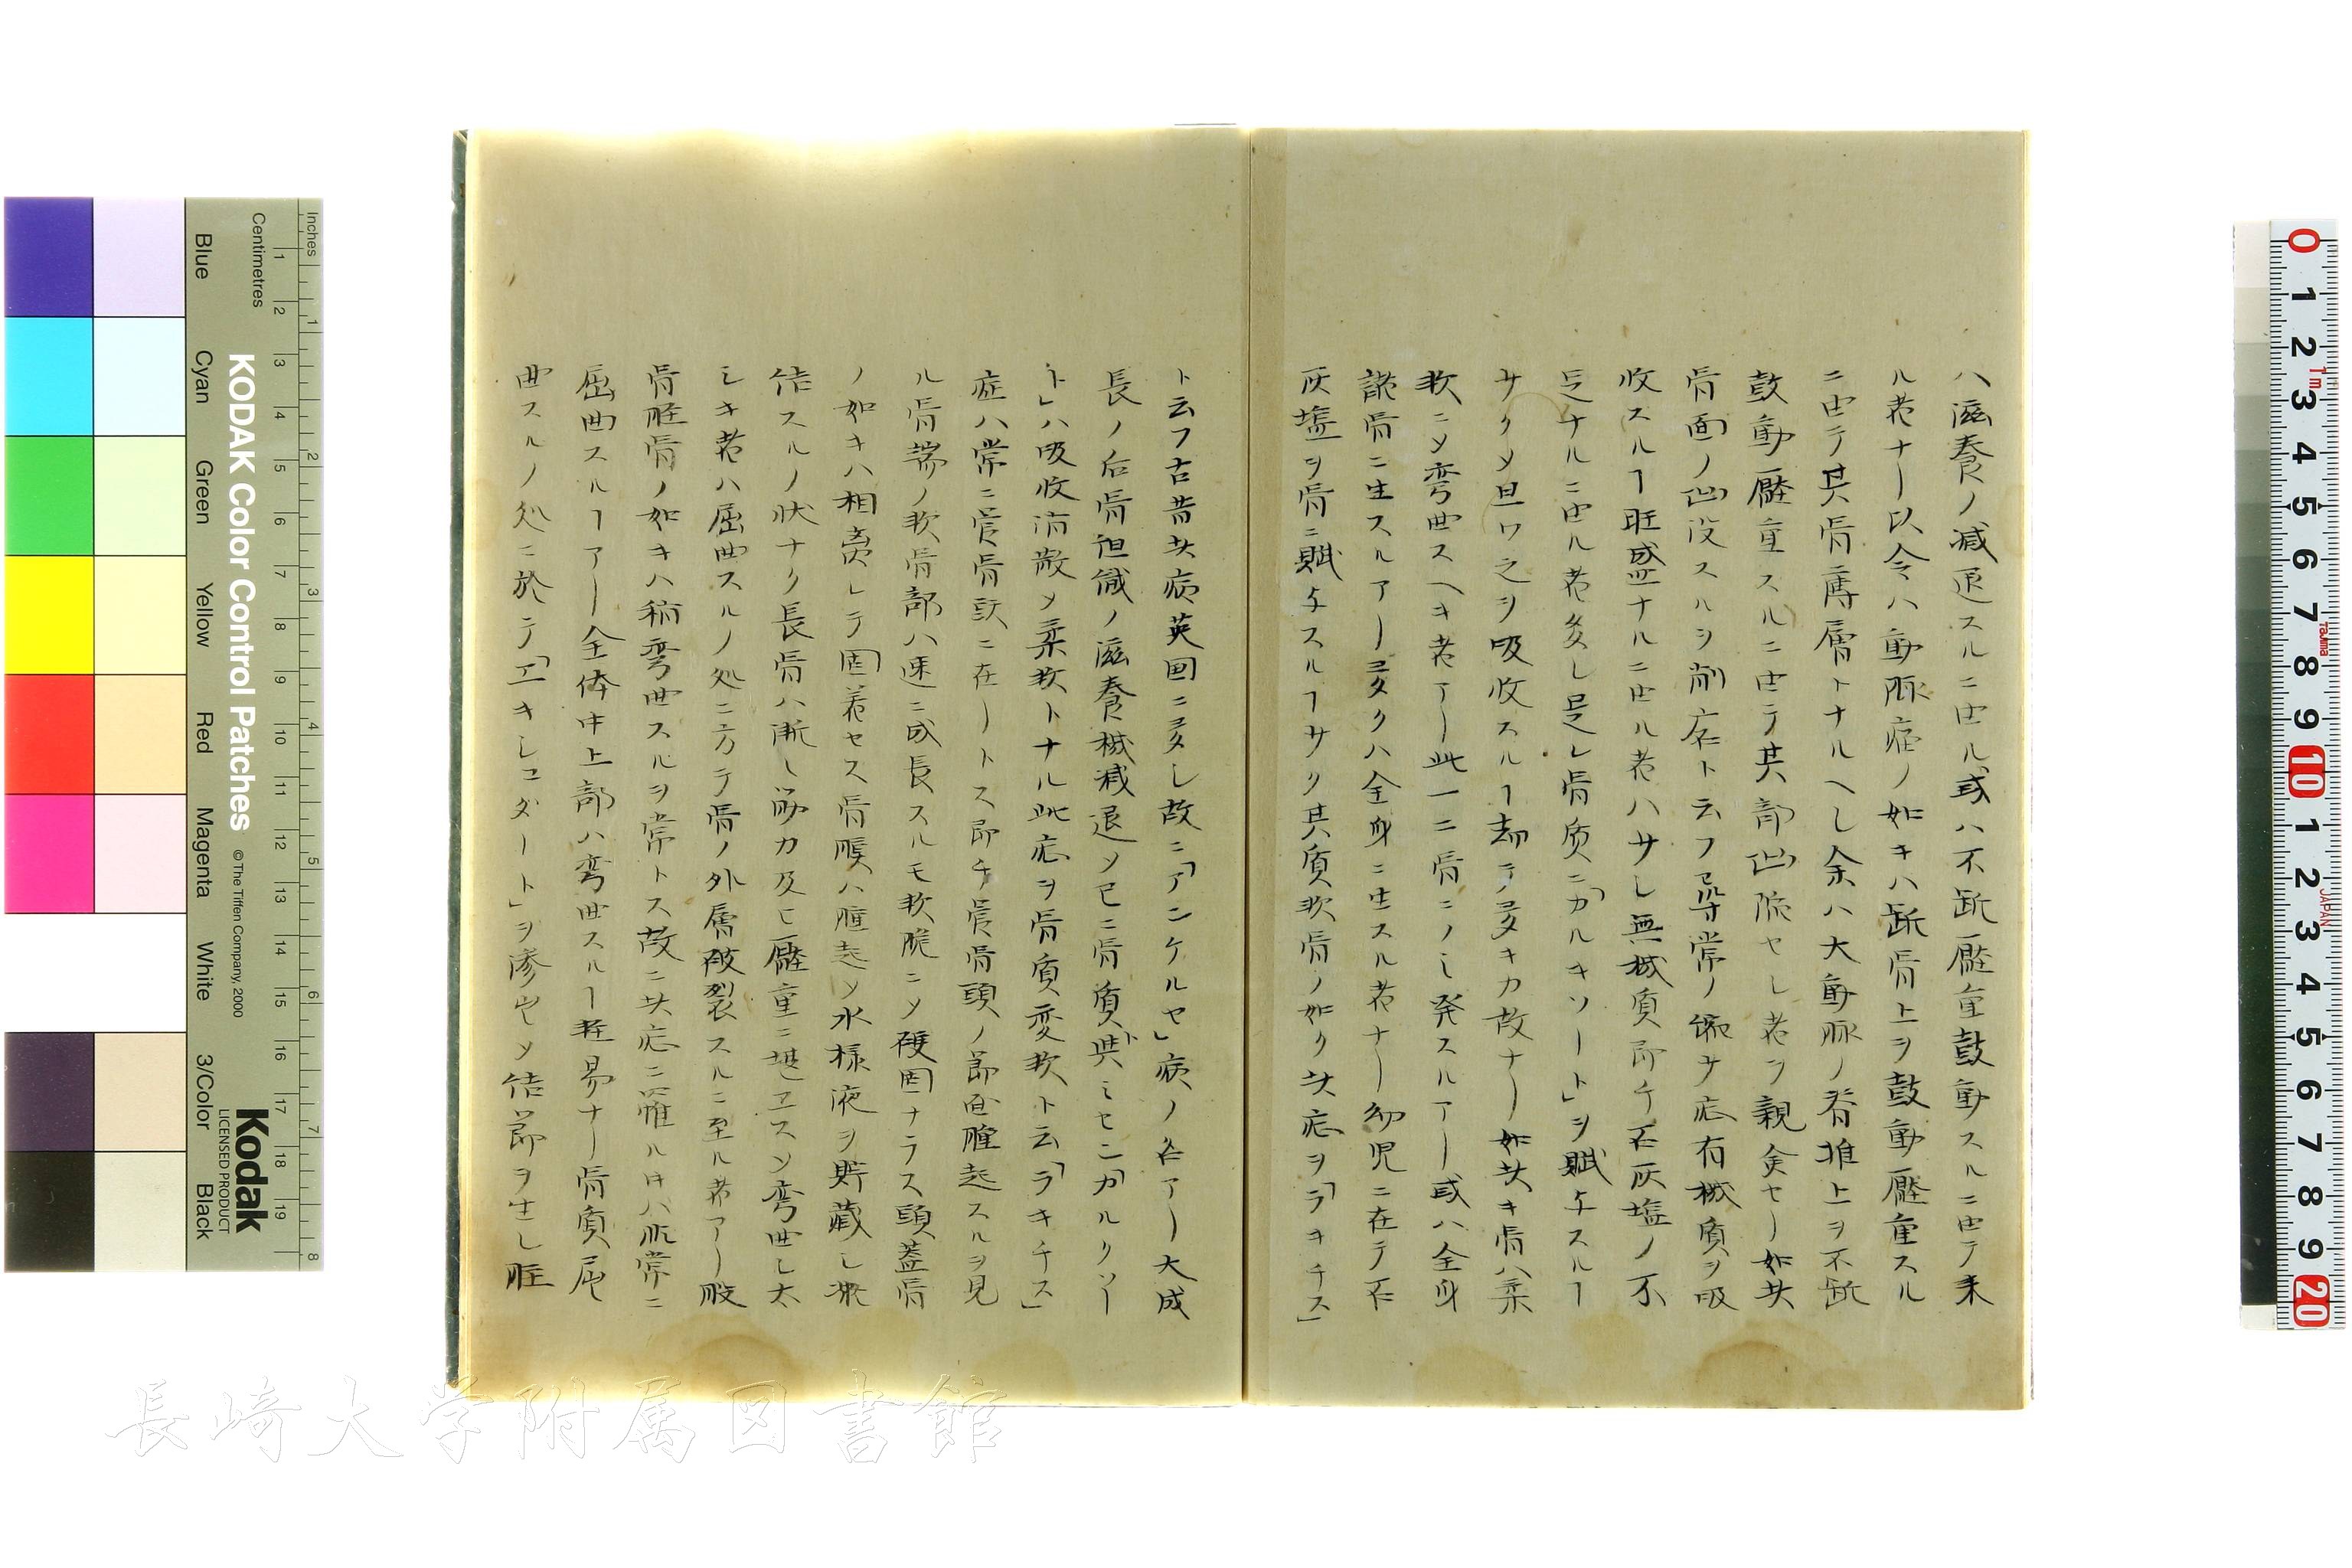 ハ滋養ノ減退スルニ由ル或ハ不断壓重鼓動スルニ由テ来
ル者ナリ以令ハ動脈瘤ノ如キハ断骨上ヲ鼓動壓重スル
ニ由テ其骨薄層トナルヘし余ハ大動脈ノ脊推上ヲ不断
鼓動壓重スルニ由テ其部凹陥セし者ヲ親僉セリ如此
骨面ノ凹没スルヲ削店ト云フ尋常ノ痲サ症有機質ヲ吸
收スルヿ旺盛ナルニ由ル者ハサし無機質即チ石灰塩ノ不
足ナルニ由ル者多し是レ骨质ニ「カルキソート」ヲ賦与スルヿ
サクメ且ワ之ヲ吸收スルヿ却テ多キカ故ナリ如此キ骨ハ柔
軟ニメ弯曲スヘキ者アリ此一二骨ニノミ発スルアリ或ハ全身
諸骨ニ生スルアリ多クハ全身ニ生スル者ナリ幼児ニ在テ石
灰塩ヲ骨ニ賦与スルヿサク其質軟骨ノ如ク此症ヲ「ラキチス」
ト云フ古昔此病英国ニ多し故ニ「アンケルセ」病ノ名アリ大成
長ノ后骨組織ノ滋養機減退メ已ニ骨質ト与ミセシ「カルクソー
ト」ハ吸收消散メ柔軟トナル此症ヲ骨質変軟ト云「ラキチス」
症ハ常ニ長骨頭ニ在リトス即チ長骨頭ノ節色腫起スルヲ見
ル骨端ノ軟骨部ハ速ニ成長スルモ軟脆ニメ硬固ナラス頭蓋骨
ノ如キハ相奇レテ固着セス骨膜ハ腫起メ水様液ヲ貯蔵し凝
结スルノ状ナク長骨ハ漸し筋力及ヒ壓重ニ堪エスメ弯曲し太
シキ者ハ屈曲スルノ処ニ方テ骨ノ外層破裂スルニ至ル者アリ股
骨脛骨ノ如キハ稍弯曲スルヲ常トス故ニ此症ニ罹ル时ハ平常ニ
屈曲スルヿアリ全体中上部ハ弯曲スルヿ軽易ナリ骨質屈
曲スルノ処ニ於テ「エキシュダート」ヲ滲出メ结節ヲ生し脛
Inches
Centimetres
KODAK Color Control Patches
© The Tiffen Company, 2000
Kodak
LICENSED PRODUCT
Blue
Cyan
Green
Yellow
Red
Magenta
White
3/Color
Black
長崎大学附属図書館